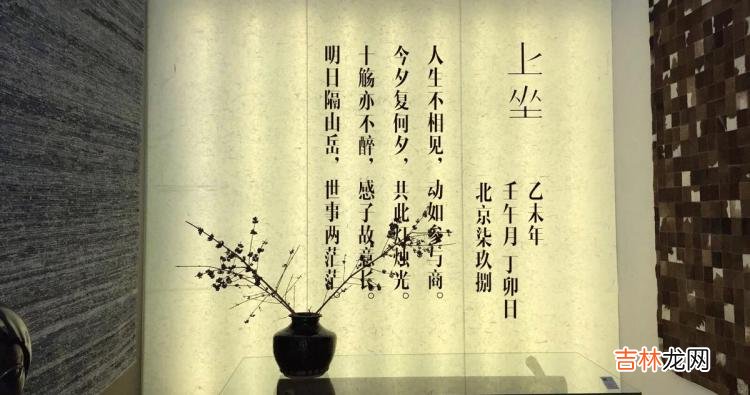 上坐
乙未年
壬午月 丁卯日
北京柒玖捌
人生不相见，动如参与商。
今夕复何夕，共此灯烛光。
十觞亦不醉，感子故意长。
明日隔山岳，世事两茫茫。
吉林龙网